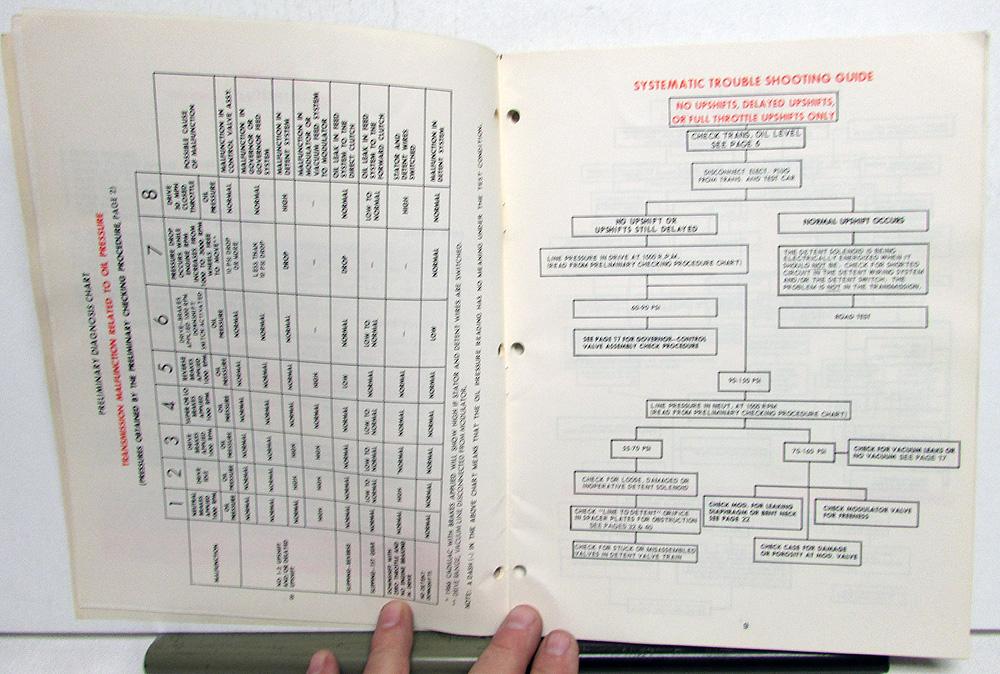 PRELIMINARY DIAGNOSIS CHART
TRANSMISSION MALFUNCTION RELATED TO OIL PRESSURE
(PRESSURES OBTAINED BY THE PRELIMINARY CHECKING PROCEDURE, PAGE 2)
1 2 3 4 5 6 7 8
MALFUNCTION
NEUTRAL BRAKES APPLIED 1000 RPM
DRIVE IDLE
DRIVE BRAKES APPLIED 1000 RPM
SUPER OR LO BRAKES APPLIED 1000 RPM
REVERSE BRAKES APPLIED 1000 RPM
DRIVE-BRAKES APPLIED 1000 RPM DOWNSHIFT SWITCH ACTIVATED
PRESSURE DROP OCCURS WHILE ENGINE RPM INCREASES FROM 1000 TO 3000 RPM WHEELS FREE TO MOVE**
DRIVE 30 MPH CLOSED THROTTLE
POSSIBLE CAUSE OF MALFUNCTION
OIL PRESSURE
NORMAL NORMAL NORMAL NORMAL NORMAL NORMAL 10 PSI DROP OR MORE NORMAL MALFUNCTION IN CONTROL VALVE ASSY.
NO 1-2 UPSHIFT AND/OR DELAYED UPSHIFT
LESS THAN 10 PSI DROP NORMAL MALFUNCTION IN GOVERNOR OR GOVERNOR FEED SYSTEM
DROP HIGH MALFUNCTION IN DETENT SYSTEM
MALFUNCTION IN MODULATOR OR VACUUM FEED SYSTEM TO MODULATOR
SLIPPING-REVERSE
LOW NORMAL DROP NORMAL OIL LEAK IN FEED SYSTEM TO THE DIRECT CLUTCH
SLIPPING-1ST GEAR
LOW TO NORMAL OIL LEAK IN FEED SYSTEM TO THE FORWARD CLUTCH
DOWNSHIFT WITH ZERO THROTTLE AND NO ENGINE BRAKING IN DRIVE
HIGH STATOR AND DETENT WIRES SWITCHED
NO DETENT DOWNSHIFTS
LOW NORMAL NORMAL MALFUNCTION IN DETENT SYSTEM
* 1968 CADILLAC WITH BRAKES APPLIED WILL SHOW HIGH IF STATOR AND DETENT WIRES ARE SWITCHED.
** DRIVE RANGE, VACUUM LINE DISCONNECTED FROM MODULATOR.
NOTE: A DASH (-) IN THE ABOVE CHART MEANS THAT THE OIL PRESSURE READING HAS NO MEANING UNDER THE TEST CONDITION.
8
SYSTEMATIC TROUBLE SHOOTING GUIDE
NO UPSHIFTS, DELAYED UPSHIFTS,
OR FULL THROTTLE UPSHIFTS ONLY
CHECK TRANS. OIL LEVEL
SEE PAGE 5
DISCONNECT ELECT. PLUG
FROM TRANS. AND TEST CAR
NO UPSHIFT OR
UPSHIFTS STILL DELAYED
NORMAL UPSHIFT OCCURS
LINE PRESSURE IN DRIVE AT 1000 R.P.M.
(READ FROM PRELIMINARY CHECKING PROCEDURE CHART)
THE DETENT SOLENOID IS BEING
ELECTRICALLY ENERGIZED WHEN IT
SHOULD NOT BE. CHECK FOR SHORTED
CIRCUIT IN THE DETENT WIRING SYSTEM
AND/OR THE DETENT SWITCH. THE
PROBLEM IS NOT IN THE TRANSMISSION.
60-90 PSI
ROAD TEST
SEE PAGE 17 FOR GOVERNOR-CONTROL
VALVE ASSEMBLY CHECK PROCEDURE
90-150 PSI
LINE PRESSURE IN NEUT. AT 1000 RPM
(READ FROM PRELIMINARY CHECKING PROCEDURE CHART)
55-70 PSI
70-160 PSI
CHECK FOR VACUUM LEAKS OR
NO VACUUM SEE PAGE 17
CHECK FOR LOOSE, DAMAGED OR
INOPERATIVE DETENT SOLENOID
CHECK "LINE TO DETENT" ORIFICE
IN SPACER PLATES FOR OBSTRUCTION
SEE PAGES 32 & 40
CHECK MOD. FOR LEAKING
DIAPHRAGM OR BENT NECK
SEE PAGE 22
CHECK MODULATOR VALVE
FOR FREENESS
CHECK FOR STUCK OR MISASSEMBLED
VALVES IN DETENT VALVE TRAIN
CHECK CASE FOR DAMAGE
OR POROSITY AT MOD. VALVE
9